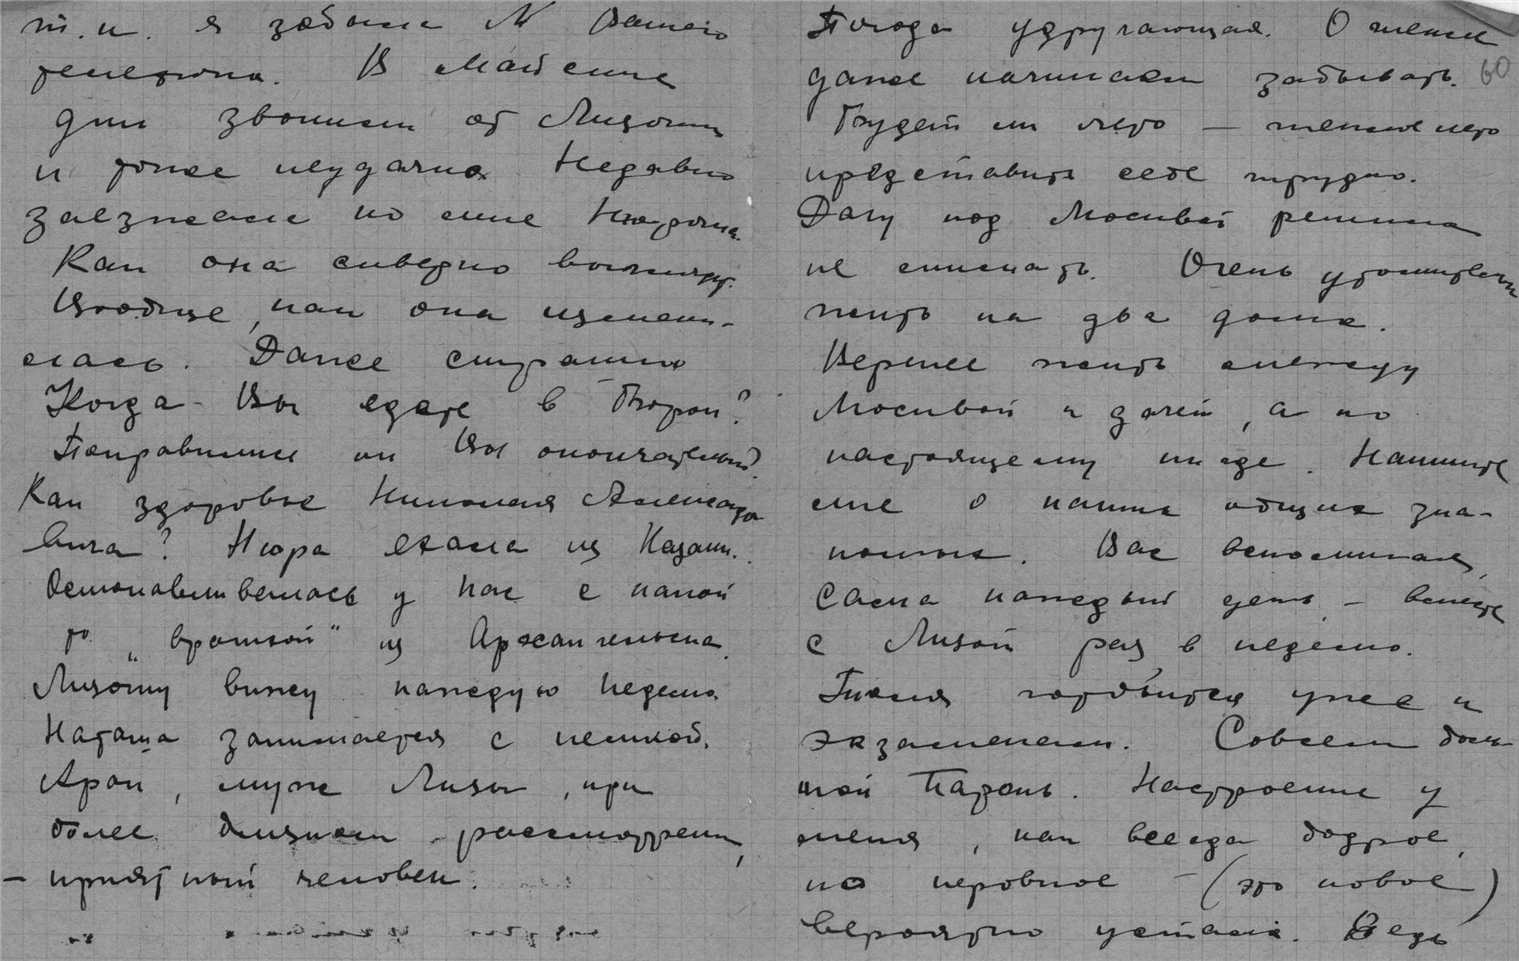 т.к. я забыла № Вашего
телефона. В Майские
дни звонили от Лизочки
и тоже неудачно. Недавно
заезжала ко мне Нюрочка.
Как она скверно выглядит.
Вообще, как она измени-
лась. Даже страшно
Когда Вы едете в Боровое?
Поправились ли Вы окончательно?
Как здоровье Николая Александро
вича? Нюра ехала из Казани.
Останавливалась у нас с какой
то „врачихой" из Архангельска.
Лизочку вижу каждую неделю.
Наташа занимается с немкой.
Арон, муж Лизы, при
более близком рассмотрении,
– приятный человек.
Погода удручающая. О тепле
60
даже начинаем забывать.
Будет ли лето — теплое лето
представить себе трудно.
Дачу под Москвой решила
не снимать. Очень утомительно
жить на два дома.
Вернее жить между
Москвой и дачей, а по
настоящему нигде. Напишите
мне о наших общих зна-
комых. Вас вспоминаем,
сама каждый день – вместе
с Лизой раз в неделю.
готовится уже к
экзаменам. Совсем боль
шой парень. Настроение у
меня, как всегда бодрое,
но неровное – (это новое)
вероятно устала. Ведь